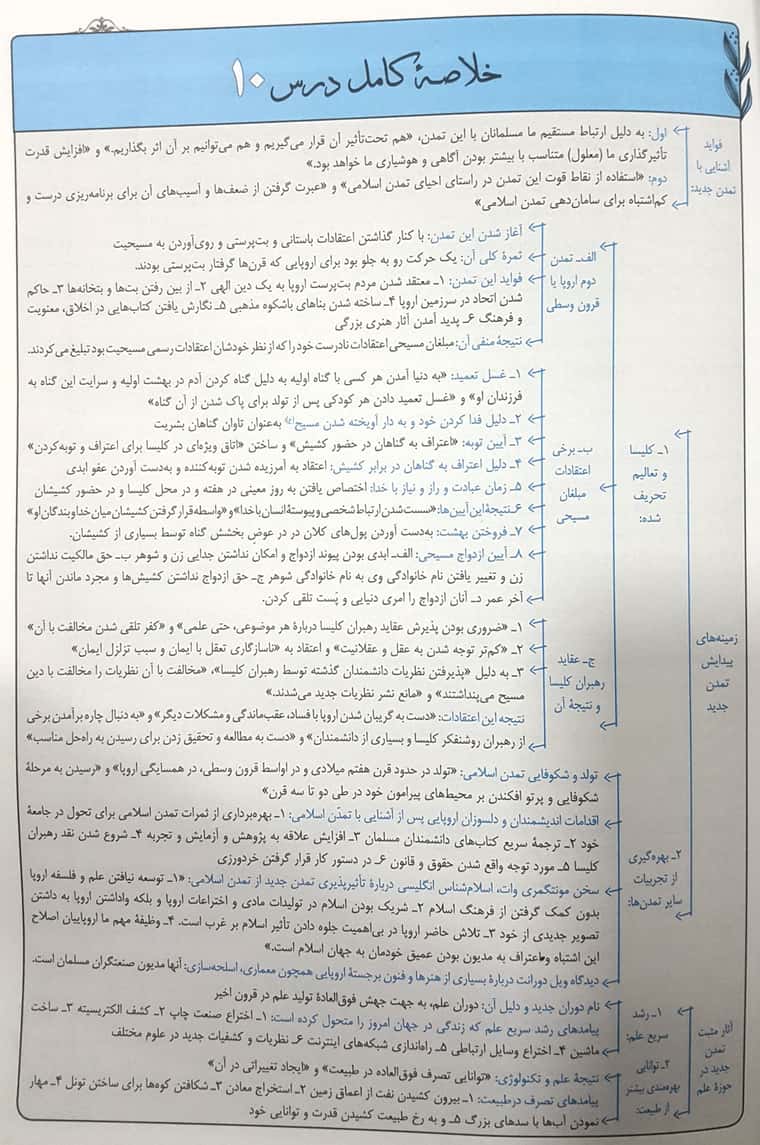 خلاصهٔ کامل درس ۱۰
فواید
آشنایی با
تمدن جدید:
اول: به دلیل ارتباط مستقیم ما مسلمانان با این تمدن، «هم تحت‌تأثیر آن قرار می‌گیریم و هم می‌توانیم بر آن اثر بگذاریم.» و «افزایش قدرت
تأثیرگذاری ما (معلول) متناسب با بیشتر بودن آگاهی و هوشیاری ما خواهد بود.»
دوم: «استفاده از نقاط قوت این تمدن در راستای احیای تمدن اسلامی» و «عبرت گرفتن از ضعف‌ها و آسیب‌های آن برای برنامه‌ریزی درست و
کم‌اشتباه برای سامان‌دهی تمدن اسلامی»
زمینه‌های
پیدایش
تمدن
جدید
۱ـ کلیسا
و تعالیم
تحریف
شده:
الف‌ـ تمدن
دوم اروپا یا
قرون وسطی
آغاز شدن این تمدن: با کنار گذاشتن اعتقادات باستانی و بت‌پرستی و روی‌آوردن به مسیحیت
ثمرهٔ کلی آن: یک حرکت رو به جلو بود برای اروپایی که قرن‌ها گرفتار بت‌پرستی بودند.
فواید این تمدن: ۱ـ معتقد شدن مردم بت‌پرست اروپا به یک دین الهی ۲ـ از بین رفتن بت‌ها و بتخانه‌ها ۳ـ حاکم
شدن اتحاد در سرزمین اروپا ۴ـ ساخته شدن بناهای باشکوه مذهبی ۵ـ نگارش یافتن کتاب‌هایی در اخلاق، معنویت
و فرهنگ ۶ـ پدید آمدن آثار هنری بزرگی
نتیجهٔ منفی آن: مبلغان مسیحی اعتقادات نادرست خود را که از نظر خودشان اعتقادات رسمی مسیحیت بود تبلیغ می‌کردند.
ب‌ـ برخی
اعتقادات
مبلغان
مسیحی
۱ـ غسل تعمید: «به دنیا آمدن هر کسی با گناه اولیه به دلیل گناه کردن آدم در بهشت اولیه و سرایت این گناه به
فرزندان او» و «غسل تعمید دادن هر کودکی پس از تولد برای پاک شدن از آن گناه»
۲ـ دلیل فدا کردن خود و به دار آویخته شدن مسیح(ع) به‌عنوان تاوان گناهان بشریت
۳ـ آیین توبه: «اعتراف به گناهان در حضور کشیش» و ساختن «اتاق ویژه‌ای در کلیسا برای اعتراف و توبه‌کردن»
۴ـ دلیل اعتراف به گناهان در برابر کشیش: اعتقاد به آمرزیده شدن توبه‌کننده و به‌دست آوردن عفو ابدی
۵ـ زمان عبادت و راز و نیاز با خدا: اختصاص یافتن به روز معینی در هفته و در محل کلیسا و در حضور کشیشان
۶ـ نتیجهٔ این آیین‌ها: «سست شدن ارتباط شخصی و پیوستهٔ انسان با خدا» و «واسطه قرار گرفتن کشیشان میان خدا و بندگان او»
۷ـ فروختن بهشت: به‌دست آوردن پول‌های کلان در در عوضِ بخشش گناه توسط بسیاری از کشیشان.
۸ـ آیین ازدواج مسیحی: الف‌ـ ابدی بودن پیوند ازدواج و امکان نداشتن جدایی زن و شوهر ب‌ـ حق مالکیت نداشتن
زن و تغییر یافتن نام خانوادگی وی به نام خانوادگی شوهر ج‌ـ حق ازدواج نداشتن کشیش‌ها و مجرد ماندن آنها تا
آخر عمر د‌ـ آنان ازدواج را امری دنیایی و پَست تلقی کردن.
ج‌ـ عقاید
رهبران کلیسا
و نتیجهٔ آن
۱ـ «ضروری بودن پذیرش عقاید رهبران کلیسا دربارهٔ هر موضوعی، حتی علمی» و «کفر تلقی شدن مخالفت با آن»
۲ـ «کم‌تر توجه شدن به عقل و عقلانیت» و اعتقاد به «ناسازگاری تعقل با ایمان و سبب تزلزل ایمان»
۳ـ به دلیل «پذیرفتن نظریات دانشمندان گذشته توسط رهبران کلیسا»، «مخالفت با آن نظریات را مخالفت با دین
مسیح می‌پنداشتند» و «مانع نشر نظریات جدید می‌شدند.»
نتیجه این اعتقادات: «دست به گریبان شدن اروپا با فساد، عقب‌ماندگی و مشکلات دیگر» و «به دنبال چاره برآمدن برخی
از رهبران روشنفکر کلیسا و بسیاری از دانشمندان» و «دست به مطالعه و تحقیق زدن برای رسیدن به راه‌حل مناسب»
۲ـ بهره‌گیری
از تجربیات
سایر تمدن‌ها:
تولد و شکوفایی تمدن اسلامی: «تولد در حدود قرن هفتم میلادی و در اواسط قرون وسطی، در همسایگی اروپا» و «رسیدن به مرحلهٔ
شکوفایی و پرتو افکندن بر محیط‌های پیرامون خود در طی دو تا سه قرن»
اقدامات اندیشمندان و دلسوزان اروپایی پس از آشنایی با تمدّن اسلامی: ۱ـ بهره‌برداری از ثمرات تمدن اسلامی برای تحول در جامعهٔ
خود ۲ـ ترجمهٔ سریع کتاب‌های دانشمندان مسلمان ۳ـ افزایش علاقه به پژوهش و آزمایش و تجربه ۴ـ شروع شدن نقد رهبران
کلیسا ۵ـ مورد توجه واقع شدن حقوق و قانون ۶ـ در دستور کار قرار گرفتن خردورزی
سخن مونتگمری وات، اسلام‌شناس انگلیسی دربارهٔ تأثیرپذیری تمدن جدید از تمدن اسلامی: «۱ـ توسعه نیافتن علم و فلسفه اروپا
بدون کمک گرفتن از فرهنگ اسلام ۲ـ شریک بودن اسلام در تولیدات مادی و اختراعات اروپا و بلکه واداشتن اروپا به داشتن
تصویر جدیدی از خود ۳ـ تلاش حاضر اروپا در بی‌اهمیت جلوه دادن تأثیر اسلام بر غرب است. ۴ـ وظیفهٔ مهم ما اروپاییان اصلاح
این اشتباه و اعتراف به مدیون بودن عمیق خودمان به جهان اسلام است.»
دیدگاه ویل دورانت دربارهٔ بسیاری از هنرها و فنون برجستهٔ اروپایی همچون معماری، اسلحه‌سازی: آنها مدیون صنعتگران مسلمان است.
آثار مثبت
تمدن
جدید در
حوزهٔ علم
۱ـ رشد
سریع علم:
نام دوران جدید و دلیل آن: دوران علم، به جهت جهش فوق‌العادهٔ تولید علم در قرون اخیر
پیامدهای رشد سریع علم که زندگی در جهان امروز را متحول کرده است: ۱ـ اختراع صنعت چاپ ۲ـ کشف الکتریسیته ۳ـ ساخت
ماشین ۴ـ اختراع وسایل ارتباطی ۵ـ راه‌اندازی شبکه‌های اینترنت ۶ـ نظریات و کشفیات جدید در علوم مختلف
۲ـ توانایی
بهره‌مندی بیشتر
از طبیعت:
نتیجهٔ علم و تکنولوژی: «توانایی تصرف فوق‌العاده در طبیعت» و «ایجاد تغییراتی در آن»
پیامدهای تصرف درطبیعت: ۱ـ بیرون کشیدن نفت از اعماق زمین ۲ـ استخراج معادن ۳ـ شکافتن کوه‌ها برای ساختن تونل ۴ـ مهار
نمودن آب‌ها با سدهای بزرگ ۵ـ و به رخ طبیعت کشیدن قدرت و توانایی خود